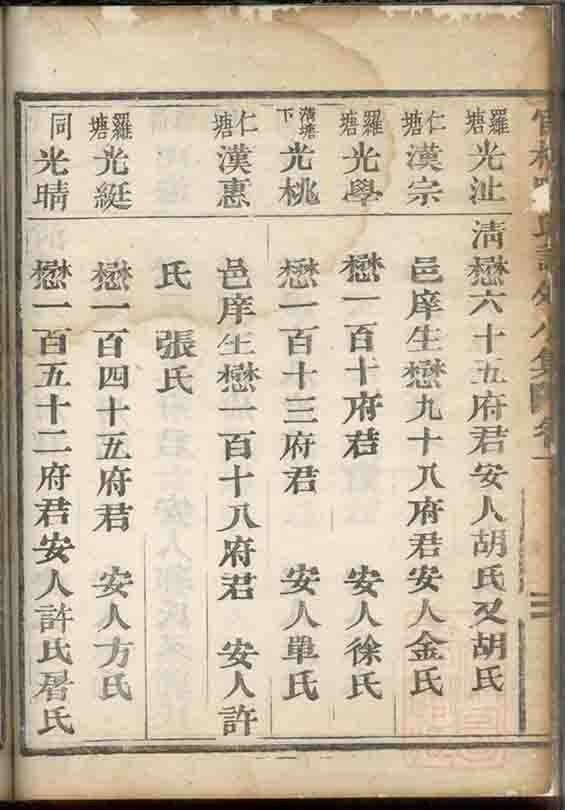 羅塘 光沚 清懋六十五府君安人胡氏又胡氏
仁塘 漢宗 邑庠生懋九十八府君安人金氏
羅塘 光學 懋一百十府君 安人徐氏
潢塘下 光桃 懋一百十三府君 安人單氏
仁塘 漢惠 邑庠生懋一百十八府君 安人許
氏 張氏
羅塘 光綎 懋一百四十五府君 安人方氏
同 光晴 懋一百五十二府君安人許氏屠氏